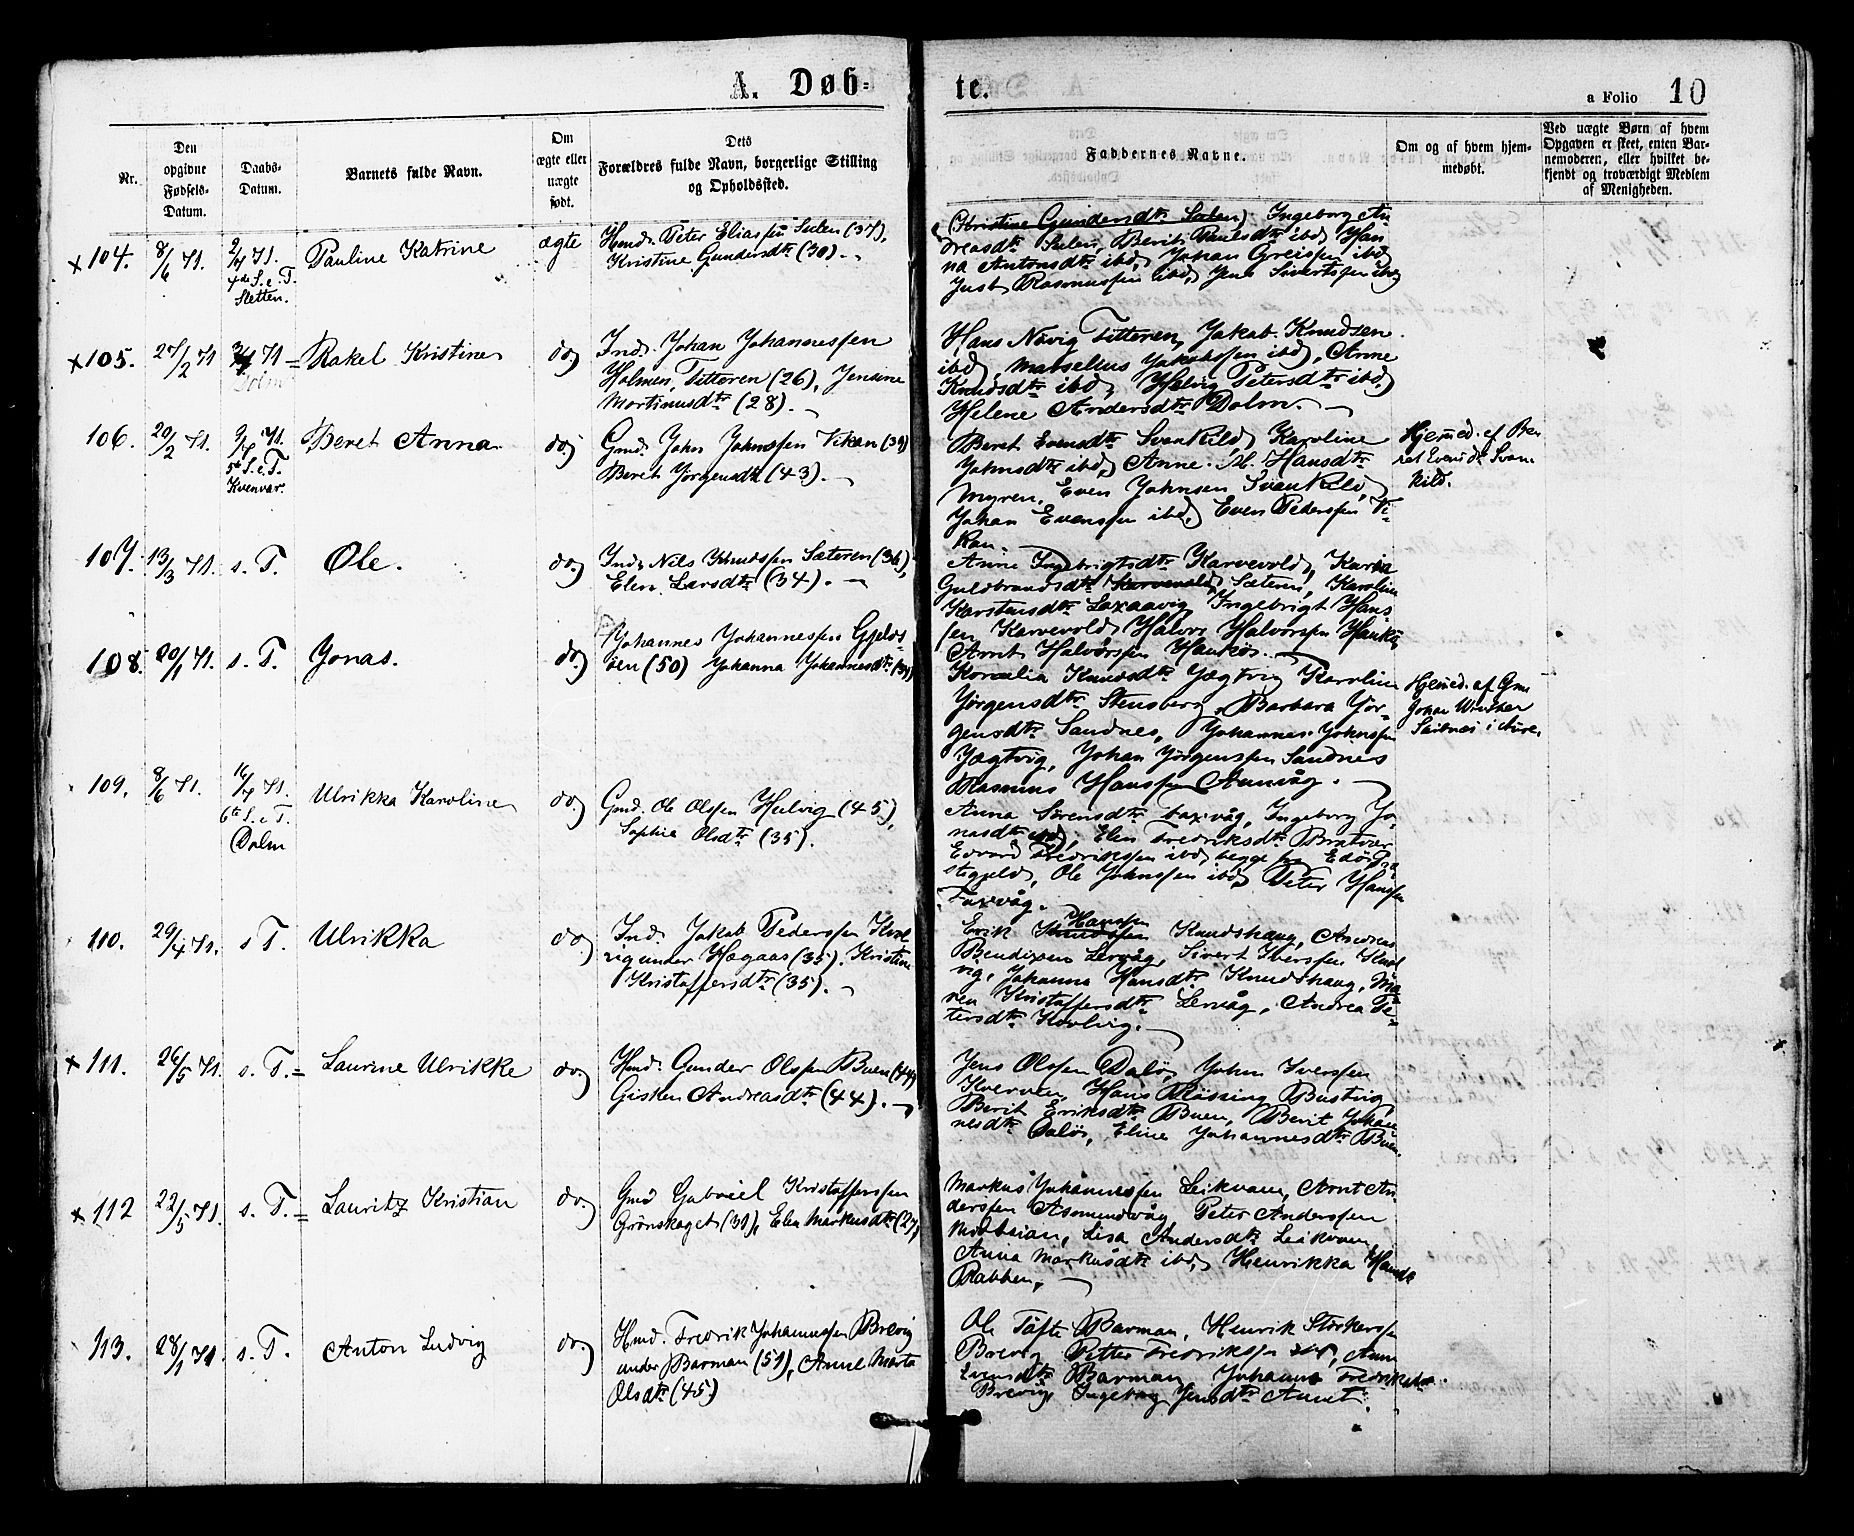 A. Døb-te.
a Folio 10
Nr.
Den opgivne Fødsels-Datum.
Daabs-Datum.
Barnets fulde Navn.
Om ægte eller uægte født.
Dets Forældres fulde Navn, borgerlige Stilling og Opholdssted.
Faddernes Navne.
Om og af hvem hjemmedøbt.
Ved uægte Børn af hvem Opgaven er skeet, enten Barnemoderen, eller hvilket bekjendt og troværdigt Medlem af Menigheden.
x 104. 8/6 71. 2/7 71.
4de S. e. T.
Sletten.
Pauline Katrine
ægte
Hmd. Peter Eliassen Sælen (37),
Kristine Gundersdtr (30).
(Kristine Gundersdtr Sælen) Ingeborg An-
dreasdtr Sælen, Berit Paulsdtr ibd, Han-
na Antonsdtr ibd, Johan Greissen ibd
Just Rasmussen ibd, Jens Sivertssen ibd
x 105. 27/2 71 71 =
Dolm
Rakel Kristine
do
Ind. Johan Johannessen
Holmen, Titteren (26), Jensine
Martinusdtr (28).
Hans Növig Titteren, Jakob Knudsen
ibd, Marselius Jakobssen ibd, Anne
Knudsdtr ibd, Helvig Petersdtr ibd,
Helene Andersdtr Dolm.
106. 20/2 71. 9/7 71.
5te S. e. T.
Kvenvær.
Beret Anna
do
Gmd. John Johnssen Vikan (39)
Beret Jörgensdtr (43).
Beret Evensdtr Svankild, Karoline
Johnsdtr ibd, Anne M. Hansdtr
Myren, Even Johnsen Svankild,
Johan Evenssen ibd, Even Pederssen Vi-
kan.
Hjemmed. af Be-
ret Evensdtr Svan-
kild.
107. 13/3 71. s. T.
Ole.
do
Ind. Nils Knudssen Sæteren (36),
Elen Larsdtr (34).
Anne Ingebrigtsdtr Karvevold, Karia
Guldbrandsdtr Karvevold, Sætern, Karolin
Karstensdtr Laxaavig, Ingebrigt Hans-
sen Karvevold, Halvor Halvorssen Haukö,
Arnt Halvorssen Haukös.
108. 20/1 71. s. T.
Jonas.
do
Johannes Johannessen Gjelds-
öen (50) Johanna Johannesdtr (39)
Kornelia Knudsdtr Jægtvig Karolin
Jörgensdtr Stensberg, Barbara Jör-
gensdtr Sandnes, Johannes Johnssen
Jægtvig, Johan Jörgenssen Sandnes
Rasmus Hanssen Aunvåg.
Hjemmed. af Gm
Johan
i Aure.
109. 8/6 71. 16/7 71.
6te S. e. T.
Dolm
Ulrikka Karoline
do
Gmd. Ole Olssen Helvig (45),
Sophie Olsdtr (35).
Anna Sörensdtr Faxvåg, Ingeborg Jo-
nasdtr ibd, Elen Fredriksdtr Bratvær
Edvard Fredrikssen ibd, begge fra Edö Præ-
stegjeld, Ole Johnssen ibd, Peter Hanssen
Faxvåg.
110. 29/4 71. s T.
Ulrikka
do
Ind. Jakob Pederssen Kval-
vig under Hægaas (35). Kristine
Kristoffersdtr (35).
Erik Knudssen Hanssen Knudshaug, Andreas
Bendixsen Lervåg, Sivert Iverssen Kval-
vig, Johanna Hansdtr Knudshaug, Ma-
ren Kristoffersdtr Lervåg, Andrea Pe-
tersdtr Kvalvig.
x 111. 26/5 71. s. T. =
Laurine Ulrikke
do
Hmd. Gunder Olssen Buen (44),
Gisken Andreasdtr (44).
Jens Olssen Dalö, John Iverssen
Kverven, Hans Rössing Bustvig,
Berit Eriksdtr Buen, Berit Johan-
nesdtr Dalö, Eline Johannesdtr Buen.
x 112 22/5 71. s. T. =
Lauritz Kristian
do.
Gmd Gabriel Kristofferssen
Grönskaget (31), Elen Markusdtr (27)
Markus Johannessen Leikvam, Arnt An-
derssen Asmundvåg Peter Anderssen
Lisa Andersdtr Leikvam,
Anna Markusdtr ibd, Henrikka Hansdtr
Rabben.
113. 28/1 71. s. T.
Anton Ludvig
do.
Hmd. Fredrik Johannssen Brevig
under Barman (51), Anne Marta
Olsdtr (45)
Ole Tøfte Barman, Henrik Storkerssen
Brevig, Petter Fredrikssen ibd, Anne
Evensdtr Barman, Johanne Fredriksdtr
Brevig, Ingeborg Jensdtr Aunet.